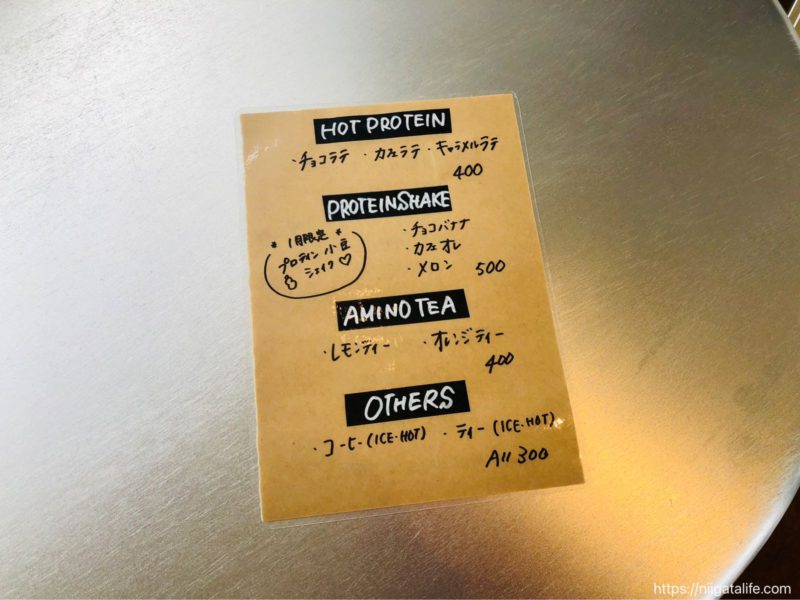 HOT PROTEIN
・チョコラテ ・カフェラテ ・キャラメルラテ
400
PROTEIN SHAKE
* 1月限定 *
プロテイン小豆
シェイク♡
・チョコバナナ
・カフェオレ
・メロン 500
AMINO TEA
・レモンティー ・オレンジティー
400
OTHERS
・コーヒー(ICE・HOT) ・ティー(ICE・HOT)
All 300
https://niigatalife.com